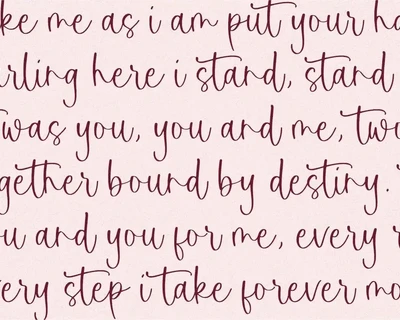 ke me as i am put your ha
rling here i stand, stand
was you, you and me, two
gether bound by destiny.
ou and you for me, every
ery step i take forever mo